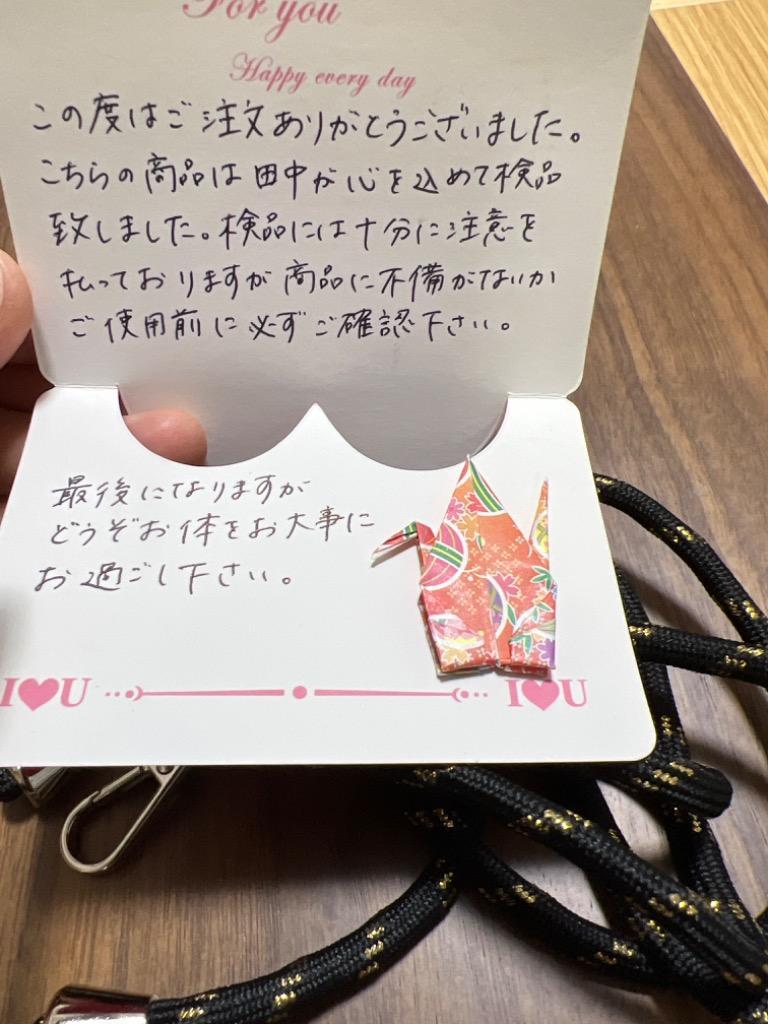 For you
Happy every day
この度はご注文ありがとうございました。
こちらの商品は田中が心を込めて検品
致しました。検品には十分に注意を
払っておりますが商品に不備がないか
ご使用前に必ずご確認下さい。
最後になりますが
どうぞお体をお大事に
お過ごし下さい。
I♥U I♥U